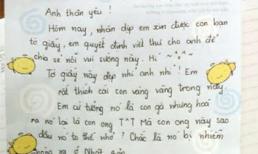 Anh thân yêu !
Hôm nay, nhân dịp em xin được con bạn
tờ giấy, em quyết định viết thư cho anh để
chia sẻ nỗi vui sướng này. Hi ~ °v° ~
Tờ giấy này đẹp nhỉ anh nhỉ ! Em
rất thích cái con vàng vàng trong này
Em cứ tưởng nó là con gà nhưng hoá
ra nó lại là con ong T^T Mà con ong này sao
đầu nó to thế nhỉ ? Chắc là nó bị nhiễm
ở Nhật